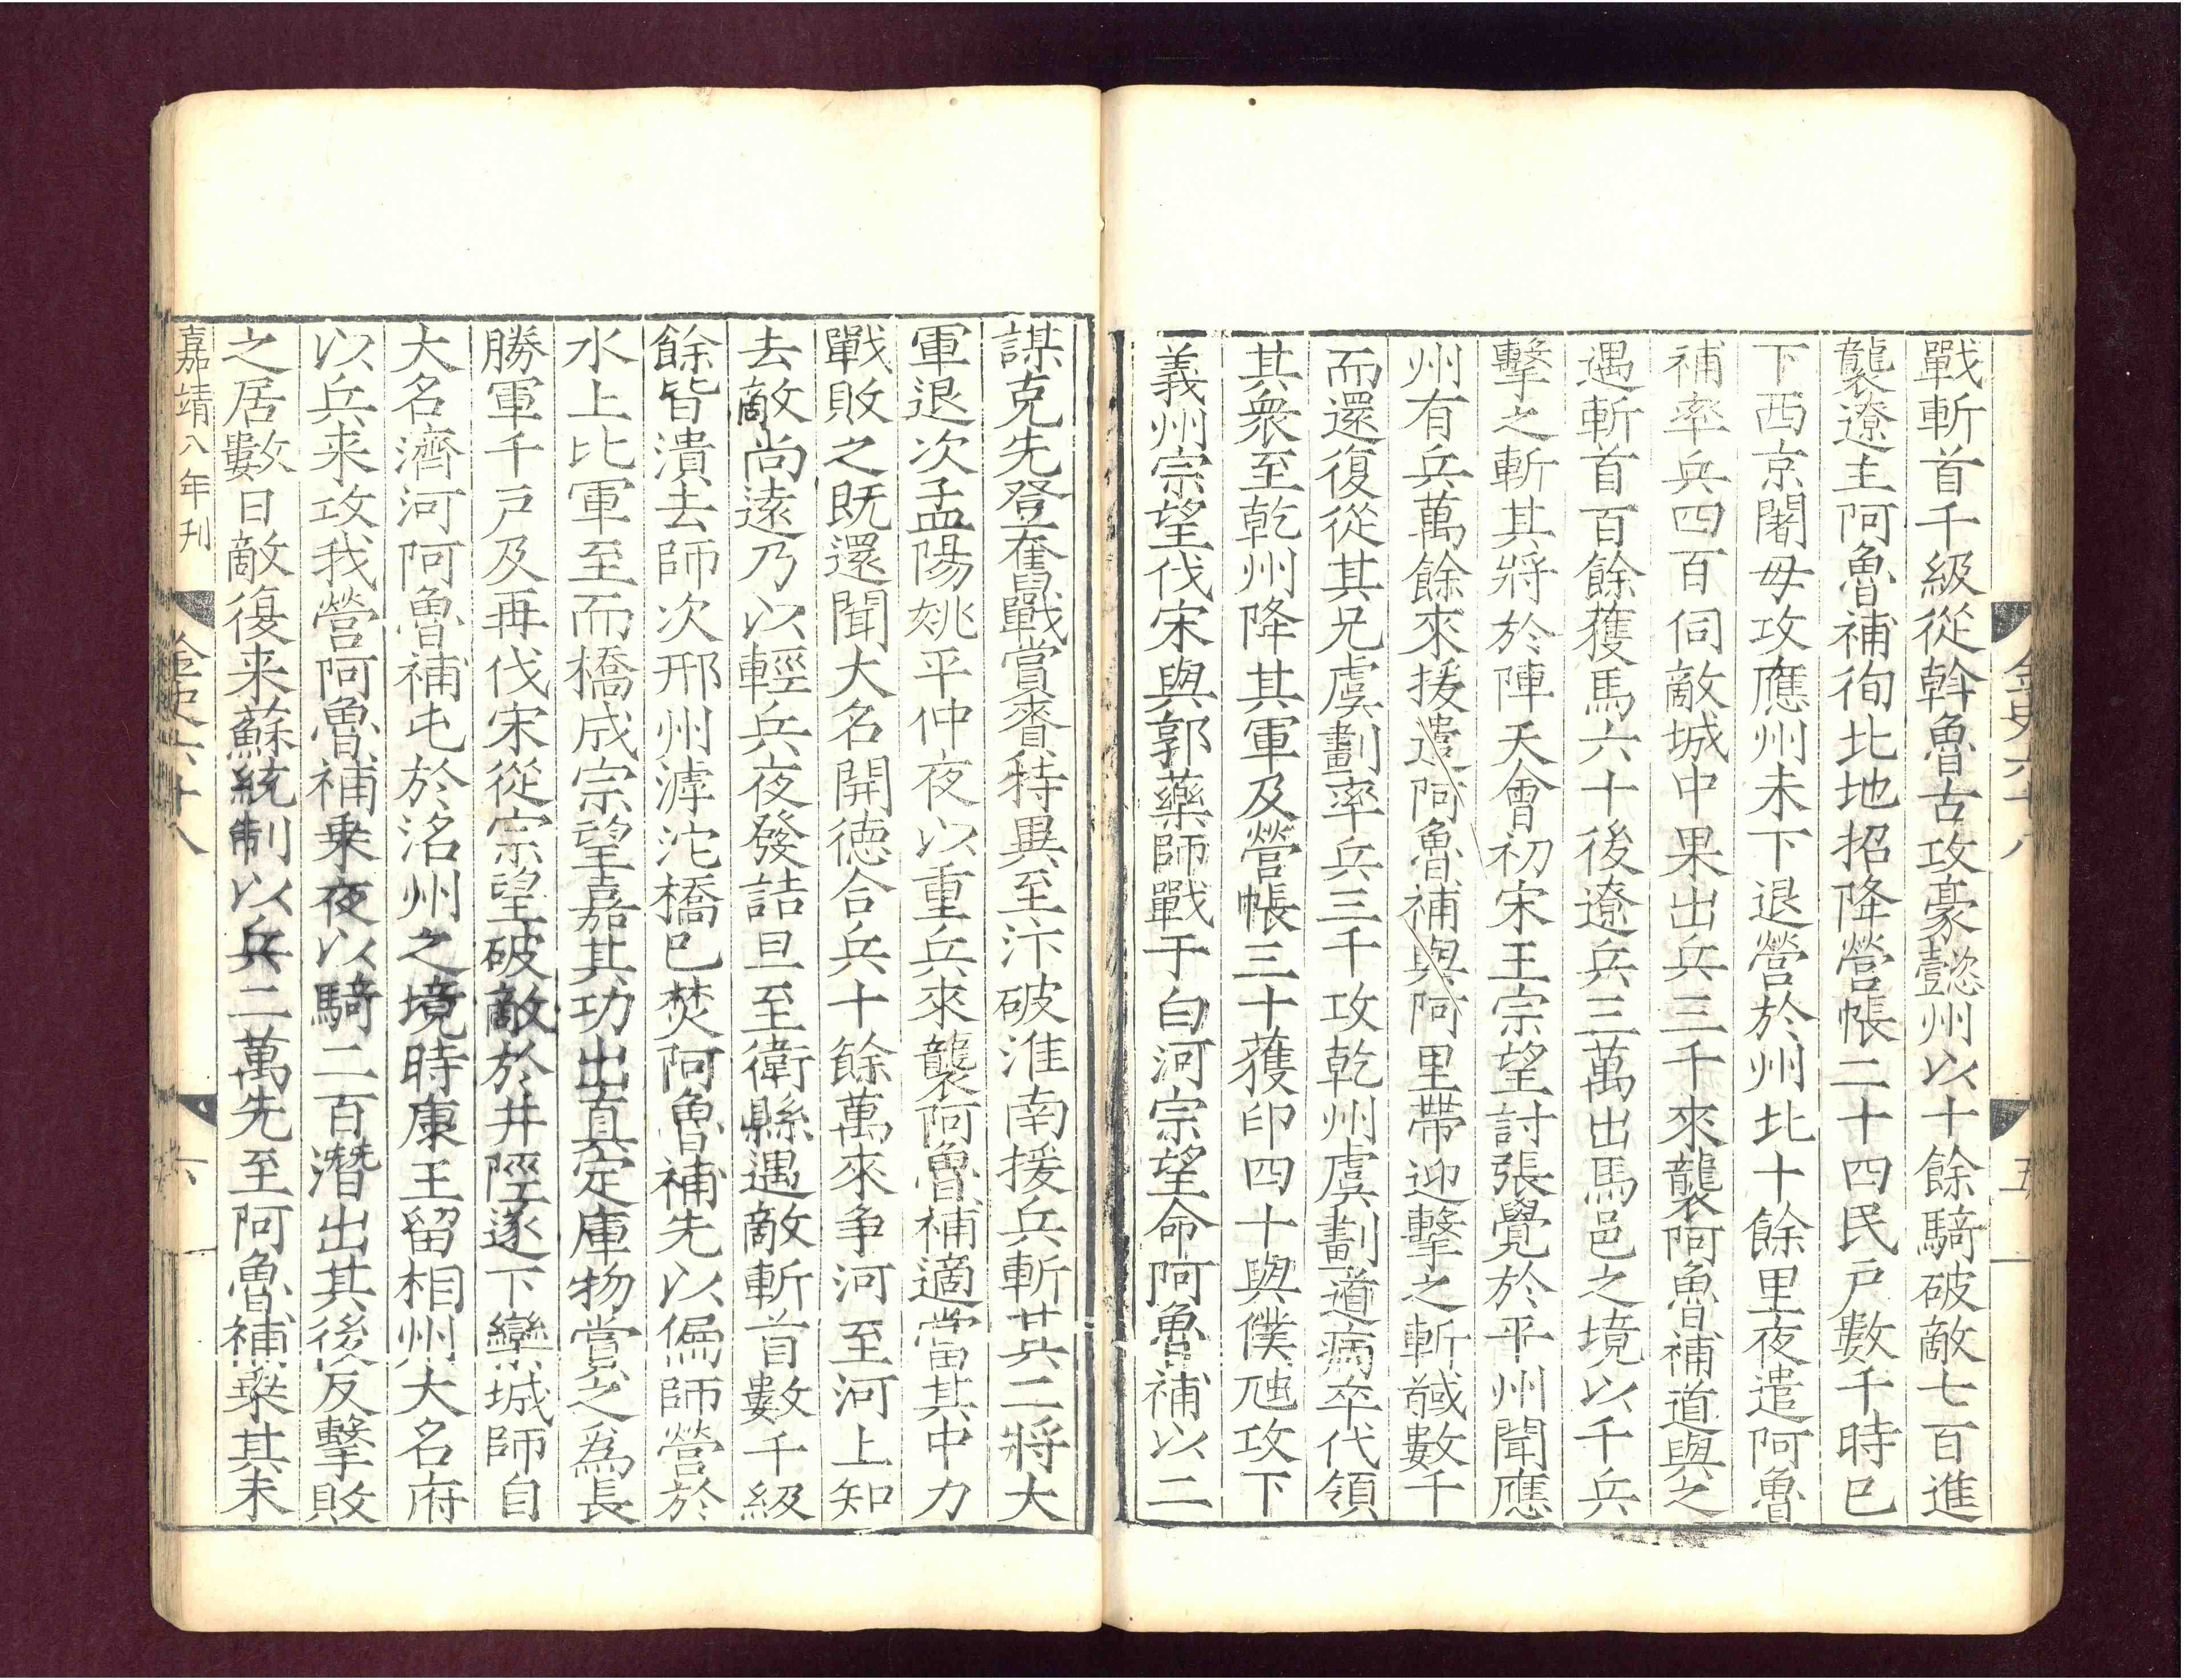 戰斬首千級從斡魯古攻豪懿州以十餘騎破敵七百進
襲遼主阿魯補徇北地招降營帳二十四民戸數千時已
下西京闍母攻應州未下退營於州北十餘里夜遣阿魯
補率兵四百伺敵城中果出兵三千來襲阿魯補道與之
遇斬首百餘獲馬六十後遼兵三萬出馬邑之境以千兵
擊之斬其將於陣天會初宋王宗望討張覺於平州聞應
州有兵萬餘來援遣阿魯補與阿里帶迎擊之斬馘數千
而還復從其兄虞劃率兵三千攻乾州虞劃道病卒代領
其衆至乾州降其軍及營帳三十獲印四十與僕虺攻下
義州宗望伐宋與郭藥師戰于白河宗望命阿魯補以二
金史六十八
五
謀克先登奮戰賞賚特異至汴破淮南援兵斬其二將大
軍退次孟陽姚平仲夜以重兵來襲阿魯補適當其中力
戰敗之既還聞大名開德合兵十餘萬來争河至河上知
去敵尚遠乃以輕兵夜發詰旦至衛縣遇敵斬首數千級
餘皆潰去師次邢州滹沱橋已焚阿魯補先以偏師營於
水上比軍至而橋成宗望嘉其功出真定庫物賞之爲長
勝軍千戸及再伐宋從宗望破敵於井陘遂下欒城師自
大名濟河阿魯補屯於洺州之境時康王留相州大名府
以兵来攻我營阿魯補乗夜以騎二百潛出其後反擊敗
之居數日敵復来蘇統制以兵二萬先至阿魯補乗其未
嘉靖八年刊
金史六十八
六